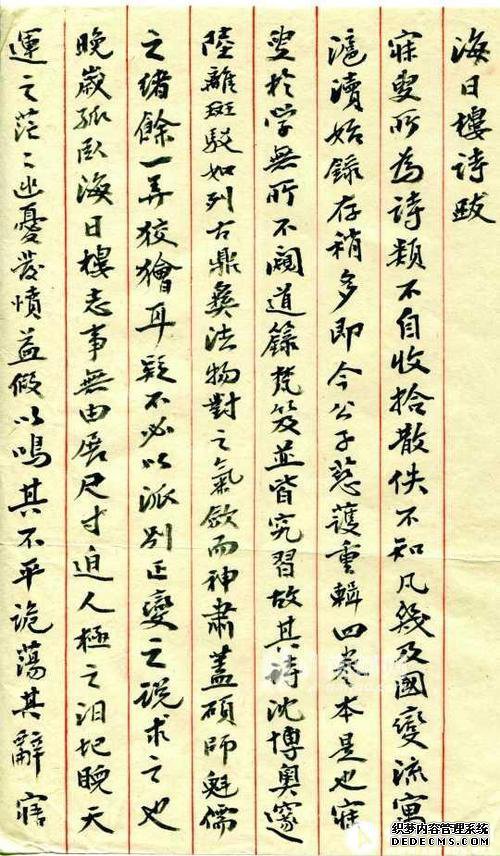 海日樓詩跋
寐叟所為詩類不自收拾散佚不知凡幾及國變流寓
滬瀆始錄存稍多即今公子慈護重輯四卷本是也寐
叟於學無所不闚道籙梵笈並皆究習故其詩沈博奧邃
陸離斑駁如列古鼎彝法物對之氣斂而神肅蓋碩師魁儒
之緒餘一弄狡獪耳疑不必以派別正變之說求之也
晚歲孤臥海日樓志事無由展尺寸迫人極之汨圮睨天
運之茫〻幽憂發憤益假以鳴其不平詭蕩其辭寤
织梦内容管理系统
DEDECMS.COM